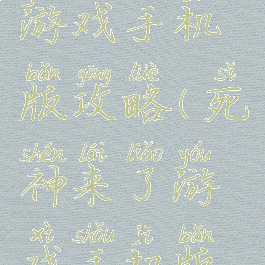 游戏手机
bǎn gōng lüè sǐ
版攻略(死
shén lái liǎo yóu
神来了游
xì shǒu jī bǎn
戏手机版